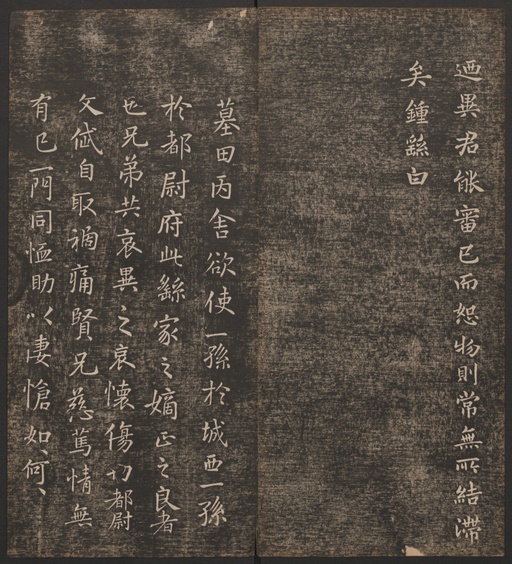 迺異君能審己而恕物則常無所結滯
矣鍾繇白
墓田丙舍欲使一孫於城西一孫
於都尉府此繇家之嫡正之良者
也兄弟共哀異之哀懷傷切都尉
文俗自取禍痛賢兄慈篤情無
有已一門同恤助以悽愴如何〻